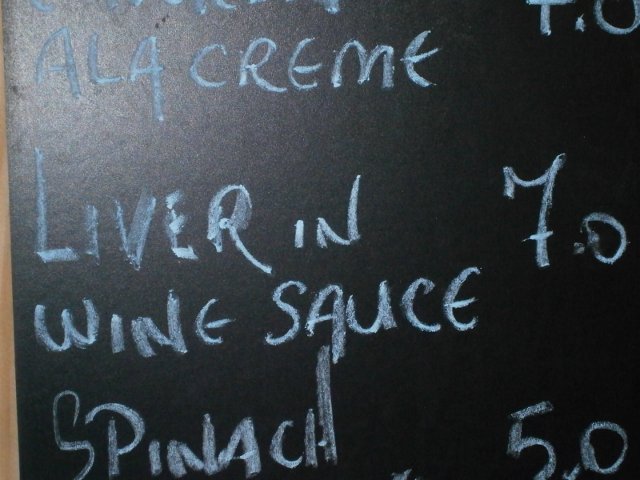 ALA CREME
LIVER IN 7.0
WINE SAUCE
SPINACH 5.0